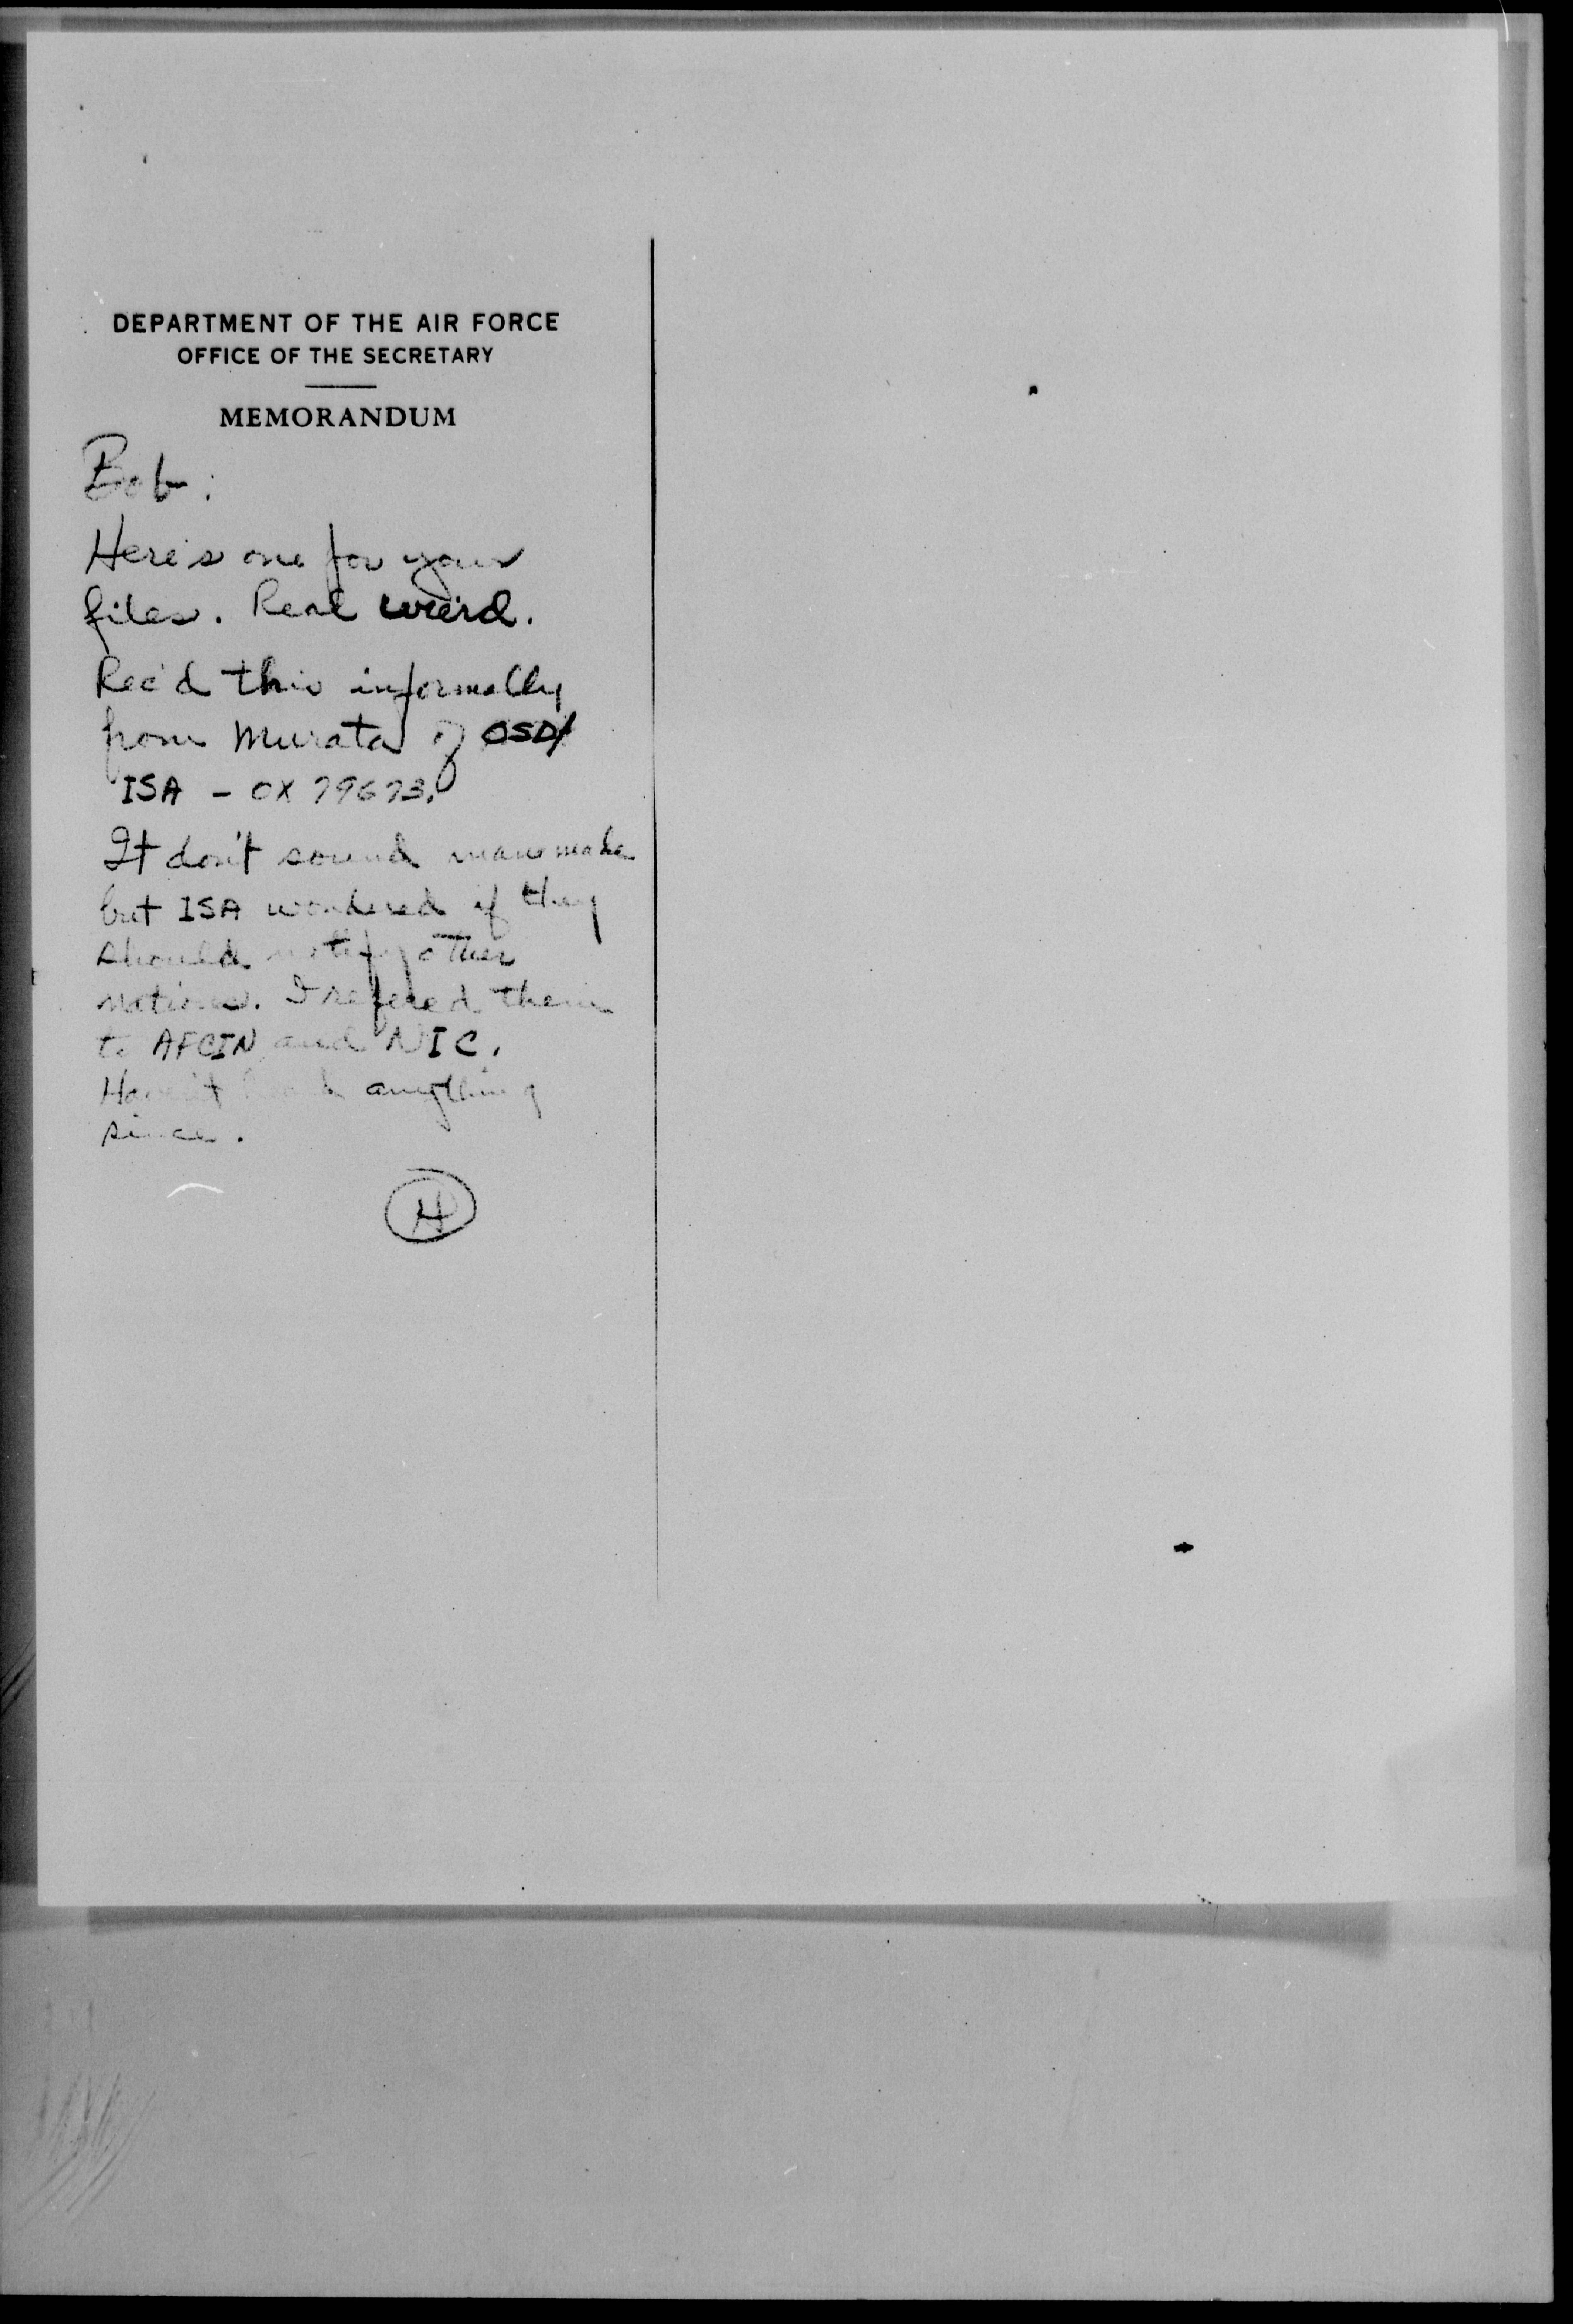 DEPARTMENT OF THE AIR FORCE
OFFICE OF THE SECRETARY
MEMORANDUM
Bob:
Here's one for your
files. Real weird.
Rec'd this informally
from Murata of OSD/
ISA - OX 79673.
It don't sound manmade
but ISA wondered if they
should notify other
nations. I refered them
to AFCIN and NIC.
Haven't heard anything
since.
H